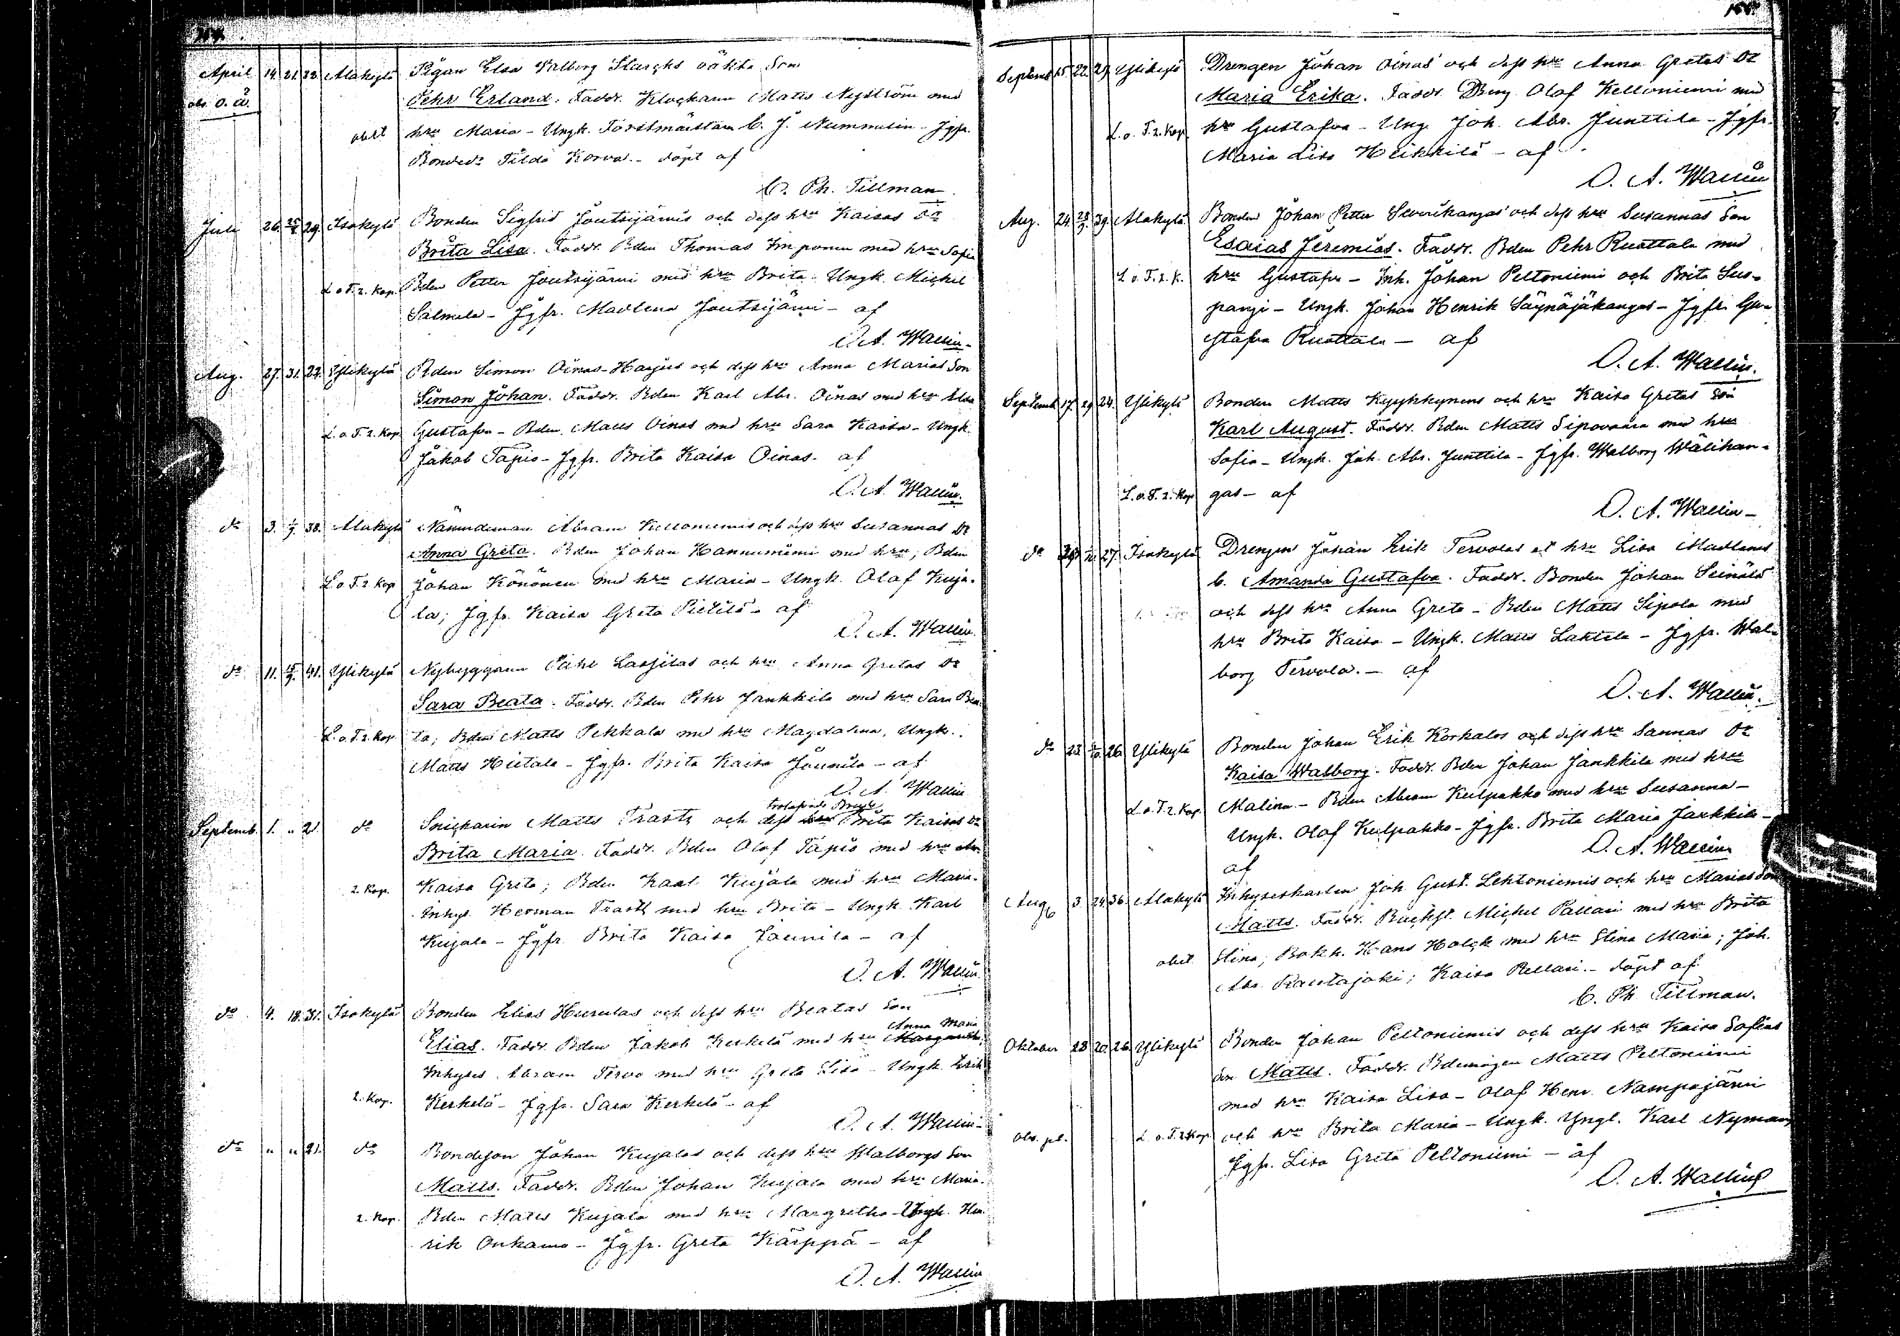 154.
April 14. 21. 32. Alakylä Pigan Elsa Valborg Starcks oäkta Son
obs. o. ä. Pehr Erland. Faddr. Klockaren Matts Nyström med
obiit hru Maria - Ungk. Forstmästaren C. J. Nummelin - Jgfr.
Bonded: Tilda Korva - döpt af
C. Ph. Tillman.
Juli 26. 29. Isokylä Bonden Sigfrid Joutsijärvis och dess hru Kaisas Dr
Brita Lisa. Faddr. Bden Thomas Imponen med hru Sofia
L. o. T. 2. Kop. Bden Petter Joutsijärvi med hru Brita - Ungk. Michel
Salmela - Jgfr. Madlena Joutsijärvi - af
O. A. Wallin.
Aug. 27. 31. 22. Ylikylä Bden Simon Oinas-Harjus och dess hru Anna Marias Son
Simon Johan. Faddr. Bden Karl Abr. Oinas med hru
L. o. T. 2. Kop. Gustafva - Bden Matts Oinas med hru Sara Kaisa - Ungk.
Jakob Tapio - Jgfr. Brita Kaisa Oinas. af
O. A. Wallin.
do 3. 38. Alakylä Nämndeman Abram Kelloniemis och dess hru Susannas Dr
Anna Greta. Bden Johan Hannuniemi med hru; Bden
L. o. T. 2 Kop Johan Könönen med hru Maria - Ungk. Olof Kuja-
la; Jgfr. Kaisa Greta Pietilä - af
O. A. Wallin.
do 11. 41. Ylikylä Nybyggaren Pähr Lassilas och hru Anna Gretas Dr
Sara Beata. Faddr. Bden Pehr Jankkila med hru Sara Bea-
L. o. T. 2. Kop. ta; Bden Matts Pekkala med hru Magdalena, Ungk.
Matts Hietala - Jgfr. Brita Kaisa Jaunila - af
O. A. Wallin
Septemb. 1. " 21. do Snickaren Matts Trasts och dess trolofvade Brud Brita Kaisas Dr
Brita Maria. Faddr. Bden Olof Tapio med hru
2. Kop. Kaisa Greta; Bden Karl Kujala med hru Maria.
Inhys. Herman Trast med hru Brita - Ungk. Karl
Kujala - Jgfr. Brita Kaisa Jaunila - af
O. A. Wallin
do 4. 18. 31. Isokylä Bonden Elias Hurulas och dess hru Beatas Son
Elias. Faddr. Bden Jakob Kerkelä med hru Anna Maria
Inhyses Abram Tervo med hru Greta Lisa - Ungk. Erik
2. Kop. Kerkelä - Jgfr. Sara Kerkelä - af
O. A. Wallin -
do " " 21. do Bondeson Johan Kujalas och dess hru Walborgs Son
Matts. Faddr. Bden Johan Kujala med hru Maria.
2. Kop. Bden Matts Kujala med hru Margretha - Ungk. Hen-
rik Onkamo - Jgfr. Greta Kärppä - af
O. A. Wallin
155.
Septemb. 15. 22. 29. Ylikylä Drengen Johan Oinas' och dess hru Anna Gretas Dr
Maria Erika. Faddr. Dreng Olof Kelloniemi med
L. o. T. 2. Kop. hru Gustafva - Ung. Joh. Abr. Junttila - Jgfr.
Maria Lisa Heikkilä - af
O. A. Wallin
Aug. 24. 39. Alakylä Bonden Johan Petter Severikangas' och dess hru Susannas Son
Esaias Jeremias. Faddr. Bden Pehr Ruottala med
L. o. T. 2. K. hru Gustafva - Inh. Johan Peltoniemi och Brita Lus-
panji - Ungk. Johan Henrik Säynäjäkangas - Jgfr. Gu-
stafva Ruottala - af
O. A. Wallin.
Septemb. 17. 29. 24. Ylikylä Bonden Matts Kyykkynens och hru Kaisa Gretas Son
Karl August. Faddr. Bden Matts Sipovaara med hru
Sofia - Ungk. Joh. Abr. Junttila - Jgfr. Walborg Wälikan-
L. o. T. 2. Kop gas - af
O. A. Wallin -
do 27. Isokylä Drengen Johan Erik Tervolas et hru Lisa Madlenas
b. Amanda Gustafva. Faddr. Bonden Johan Seinälä
och dess hru Anna Greta - Bden Matts Sipola med
hru Brita Kaisa - Ungk. Matts Laktela - Jgfr. Wal-
borg Tervola. - af
O. A. Wallin.
do 23 26 Ylikylä Bonden Johan Erik Korkalos och dess hru Sannas Dr
Kaisa Walborg. Faddr. Bden Johan Jankkila med hru
L. o. T. 2 Kop. Malina - Bden Abram Kulpakko med hru Susanna -
Ungk. Olof Kulpakko - Jgfr. Brita Maria Jankkila -
af O. A. Wallin
Aug. 3 24. 36. Alakylä Inhyseskarlen Joh. Gust. Lehtoniemis och hru Marias Son
Matts. Faddr. Michel Pallari med hru Brita
obiit Stina; Bokh. Hans Holck med hru Stina Maria; Joh.
Abr. Rautajoki; Kaisa Pallari - döpt af
C. Ph. Tillman.
Oktober 28 26 Ylikylä Bonden Johan Peltoniemis och dess hru Kaisa Sofias
Son Matts. Faddr. Bdemågen Matts Peltoniemi
med hru Kaisa Lisa - Olof Henr. Nampajärvi
obs. pl. L. o. T. 2 Kop och hru Brita Maria - Ungk. Yngl. Karl Nyman,
Jgfr. Lisa Greta Peltoniemi - af
O. A. Wallin